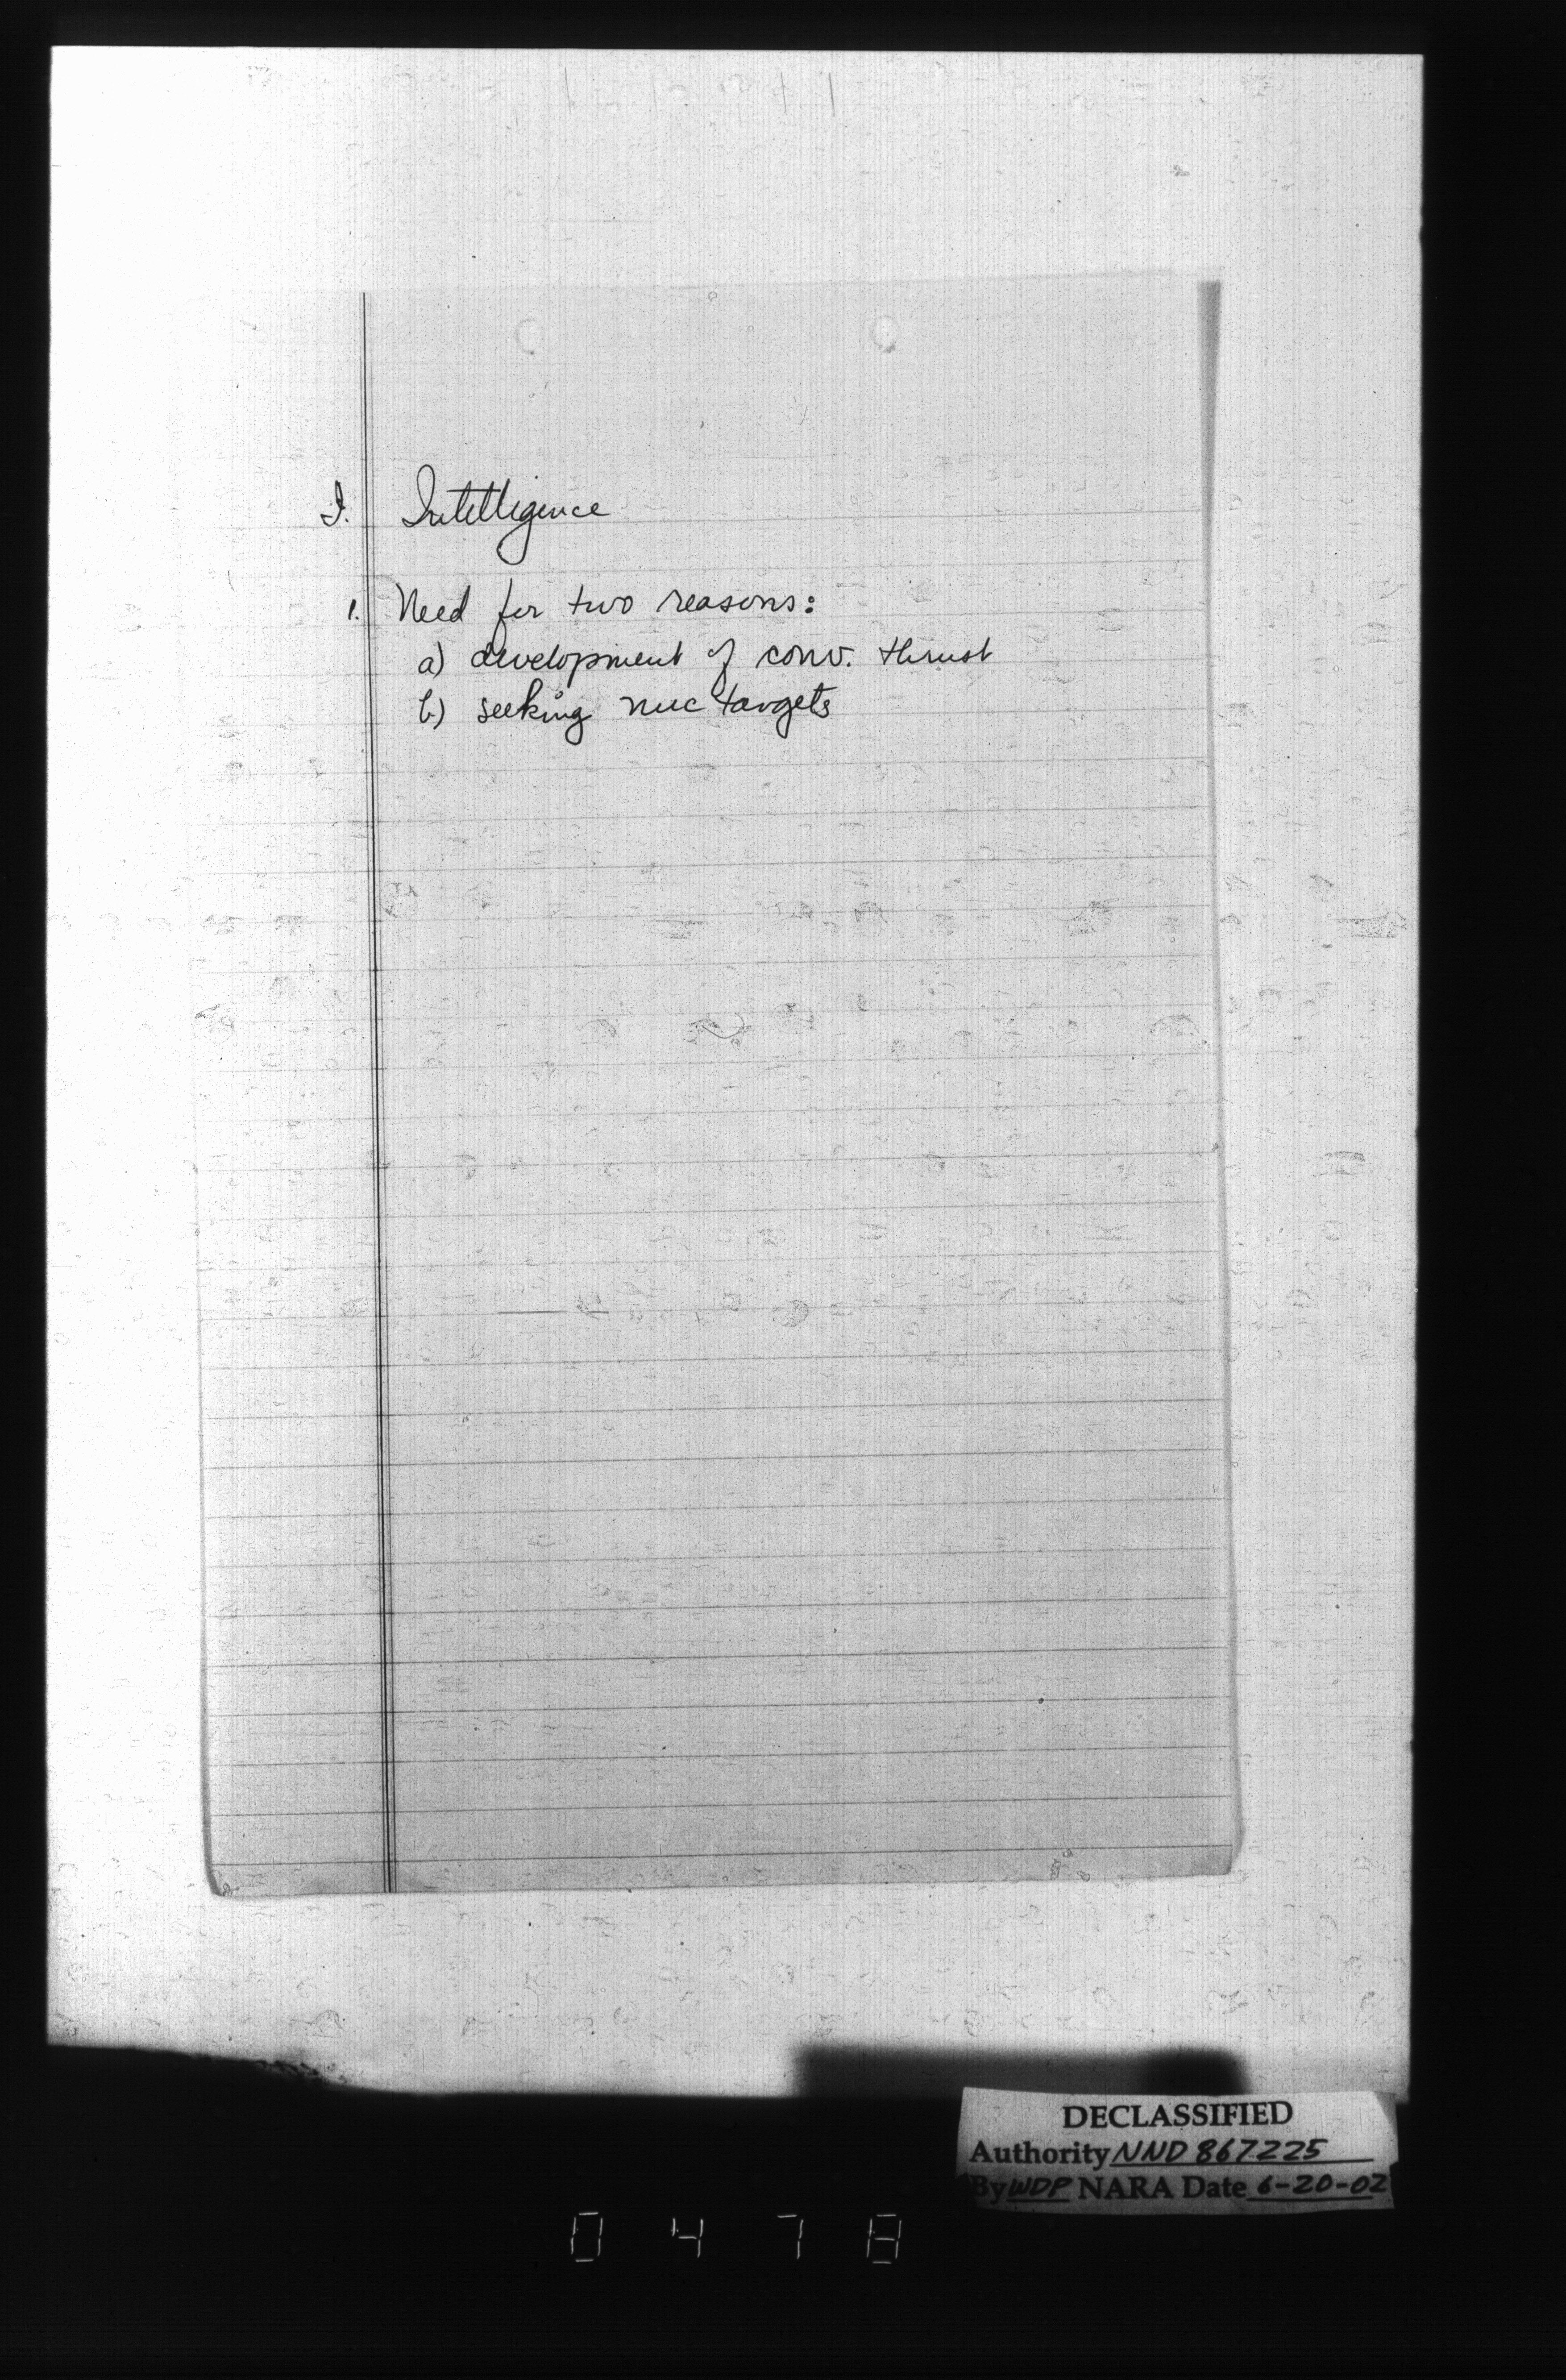 I. Intelligence
1. Need for two reasons:
a) development of conv. thrust
b) seeking nuc targets
DECLASSIFIED
Authority NND 867225
By WDP NARA Date 6-20-02
0 4 7 8